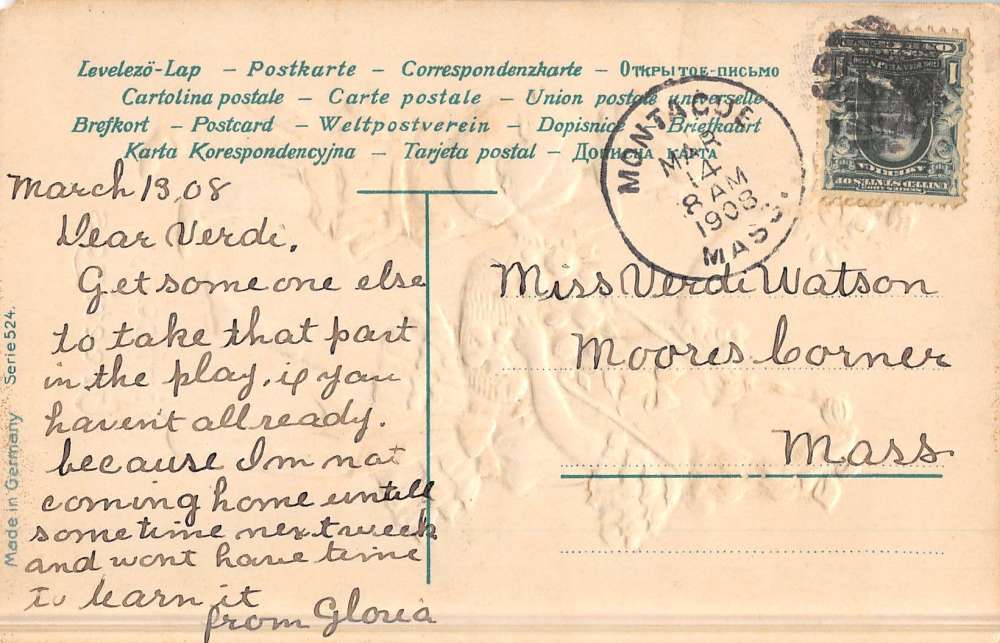 Levelező-Lap – Postkarte – Correspondenzkarte – Открытое-письмо
Cartolina postale – Carte postale – Union postale universelle
Brefkort – Postcard – Weltpostverein – Dopisnice – Briefkaart
Karta Korespondencyjna – Tarjeta postal – Дописна карта
MONTAGUE
MAR
14
8 AM
1908
MASS.
1
1
March 13, 08
Dear Verdi,
Get someone else
to take that part
in the play, if you
havent allready.
because Im not
coming home untill
sometime next week
and wont have time
to learn it
from Gloria
Miss Verdi Watson
Moores Corner
Mass
Made in Germany Serie 524.